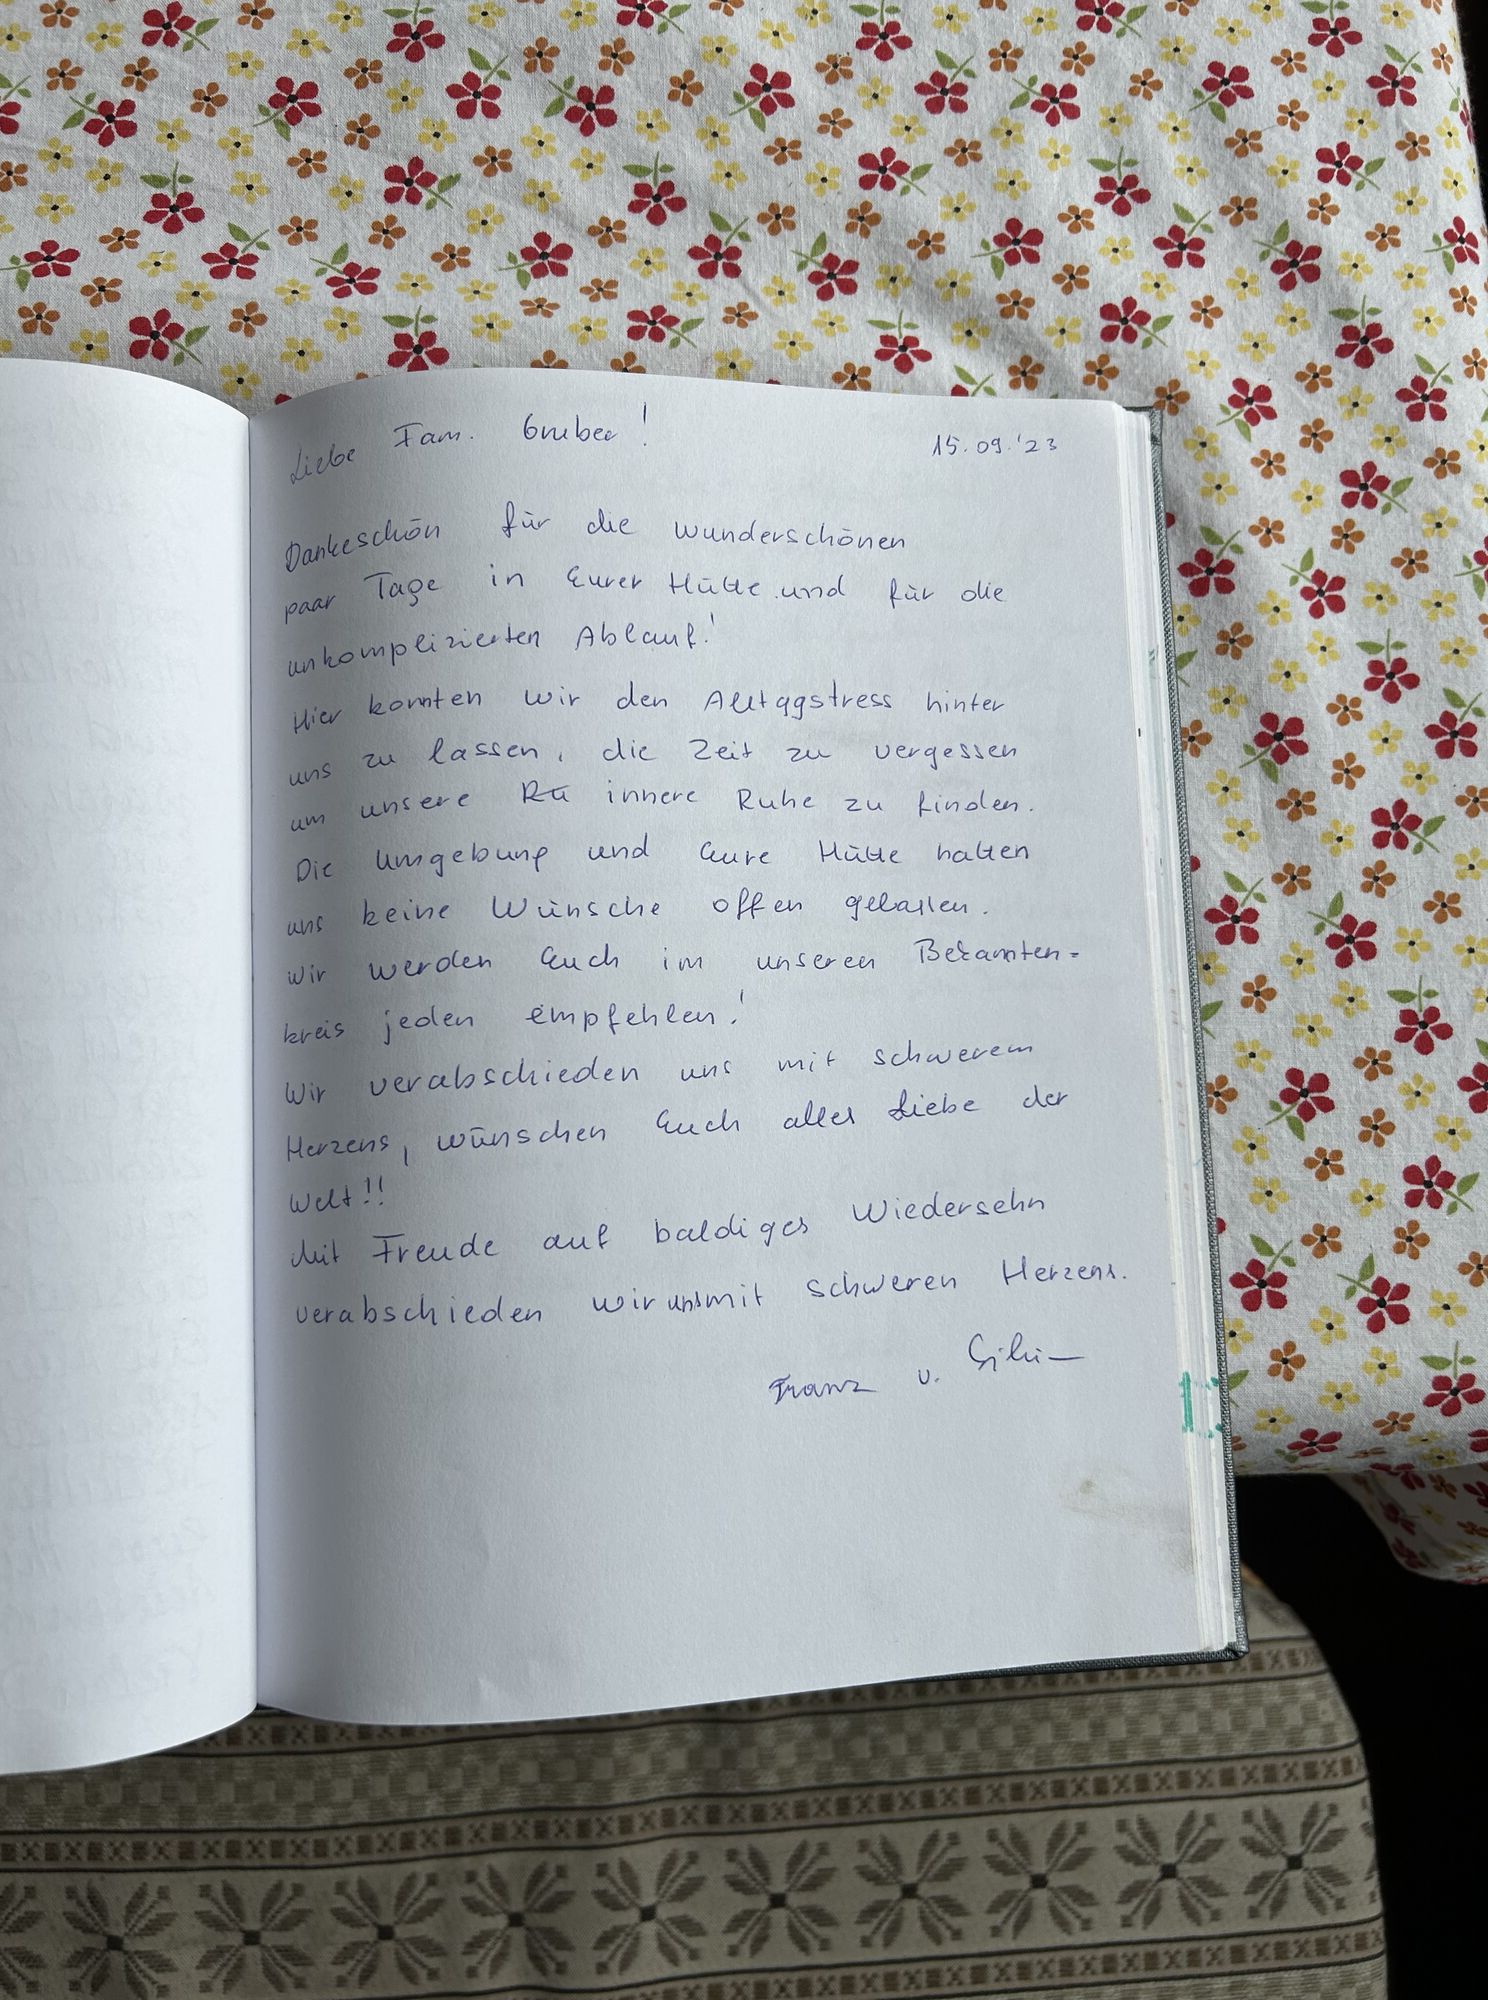 Liebe Fam. Gruber! 15.09.'23
Dankeschön für die wunderschönen
paar Tage in Eurer Hütte und für die
unkomplizierten Ablauf!
Hier konnten wir den Alltagsstress hinter
uns zu lassen, die Zeit zu vergessen
um unsere Ru innere Ruhe zu finden.
Die Umgebung und Eure Hütte haben
uns keine Wünsche offen gelassen.
Wir werden Euch im unseren Bekannten=
kreis jeden empfehlen!
Wir verabschieden uns mit schwerem
Herzens, wünschen Euch alles Liebe der
Welt!!
Mit Freude auf baldiges Wiedersehn
verabschieden wir uns mit schweren Herzens.
Franz u.